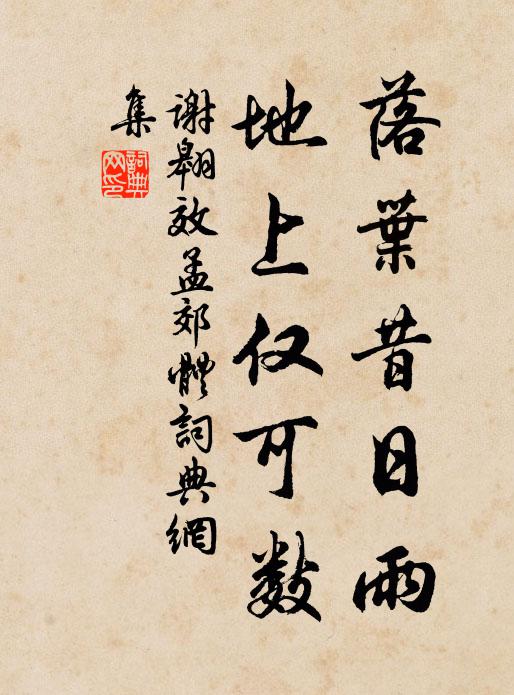 落葉昔日雨
地上仅可數
謝翱效孟郊體詞典網
集
詞典
网印